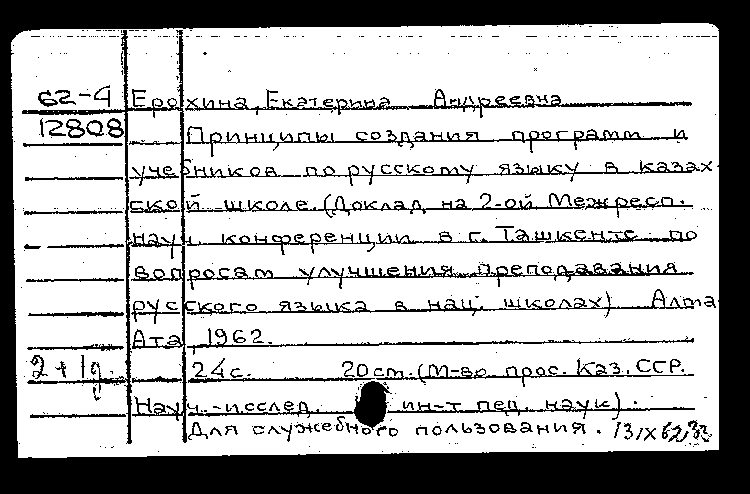 62-4 Ерохина, Екатерина Андреевна
12808 Принципы создания программ и
учебников по русскому языку в казах-
ской школе. (Доклад на 2-ой Межресп.
науч. конференции в г. Ташкенте по
вопросам улучшения преподавания
русского языка в нац. школах) Алма-
Ата, 1962.
2+1д. 24с. 20см. (М-во прос. Каз. ССР.
Науч.-исслед. ин-т пед. наук).
Для служебного пользования. 13 IX 62